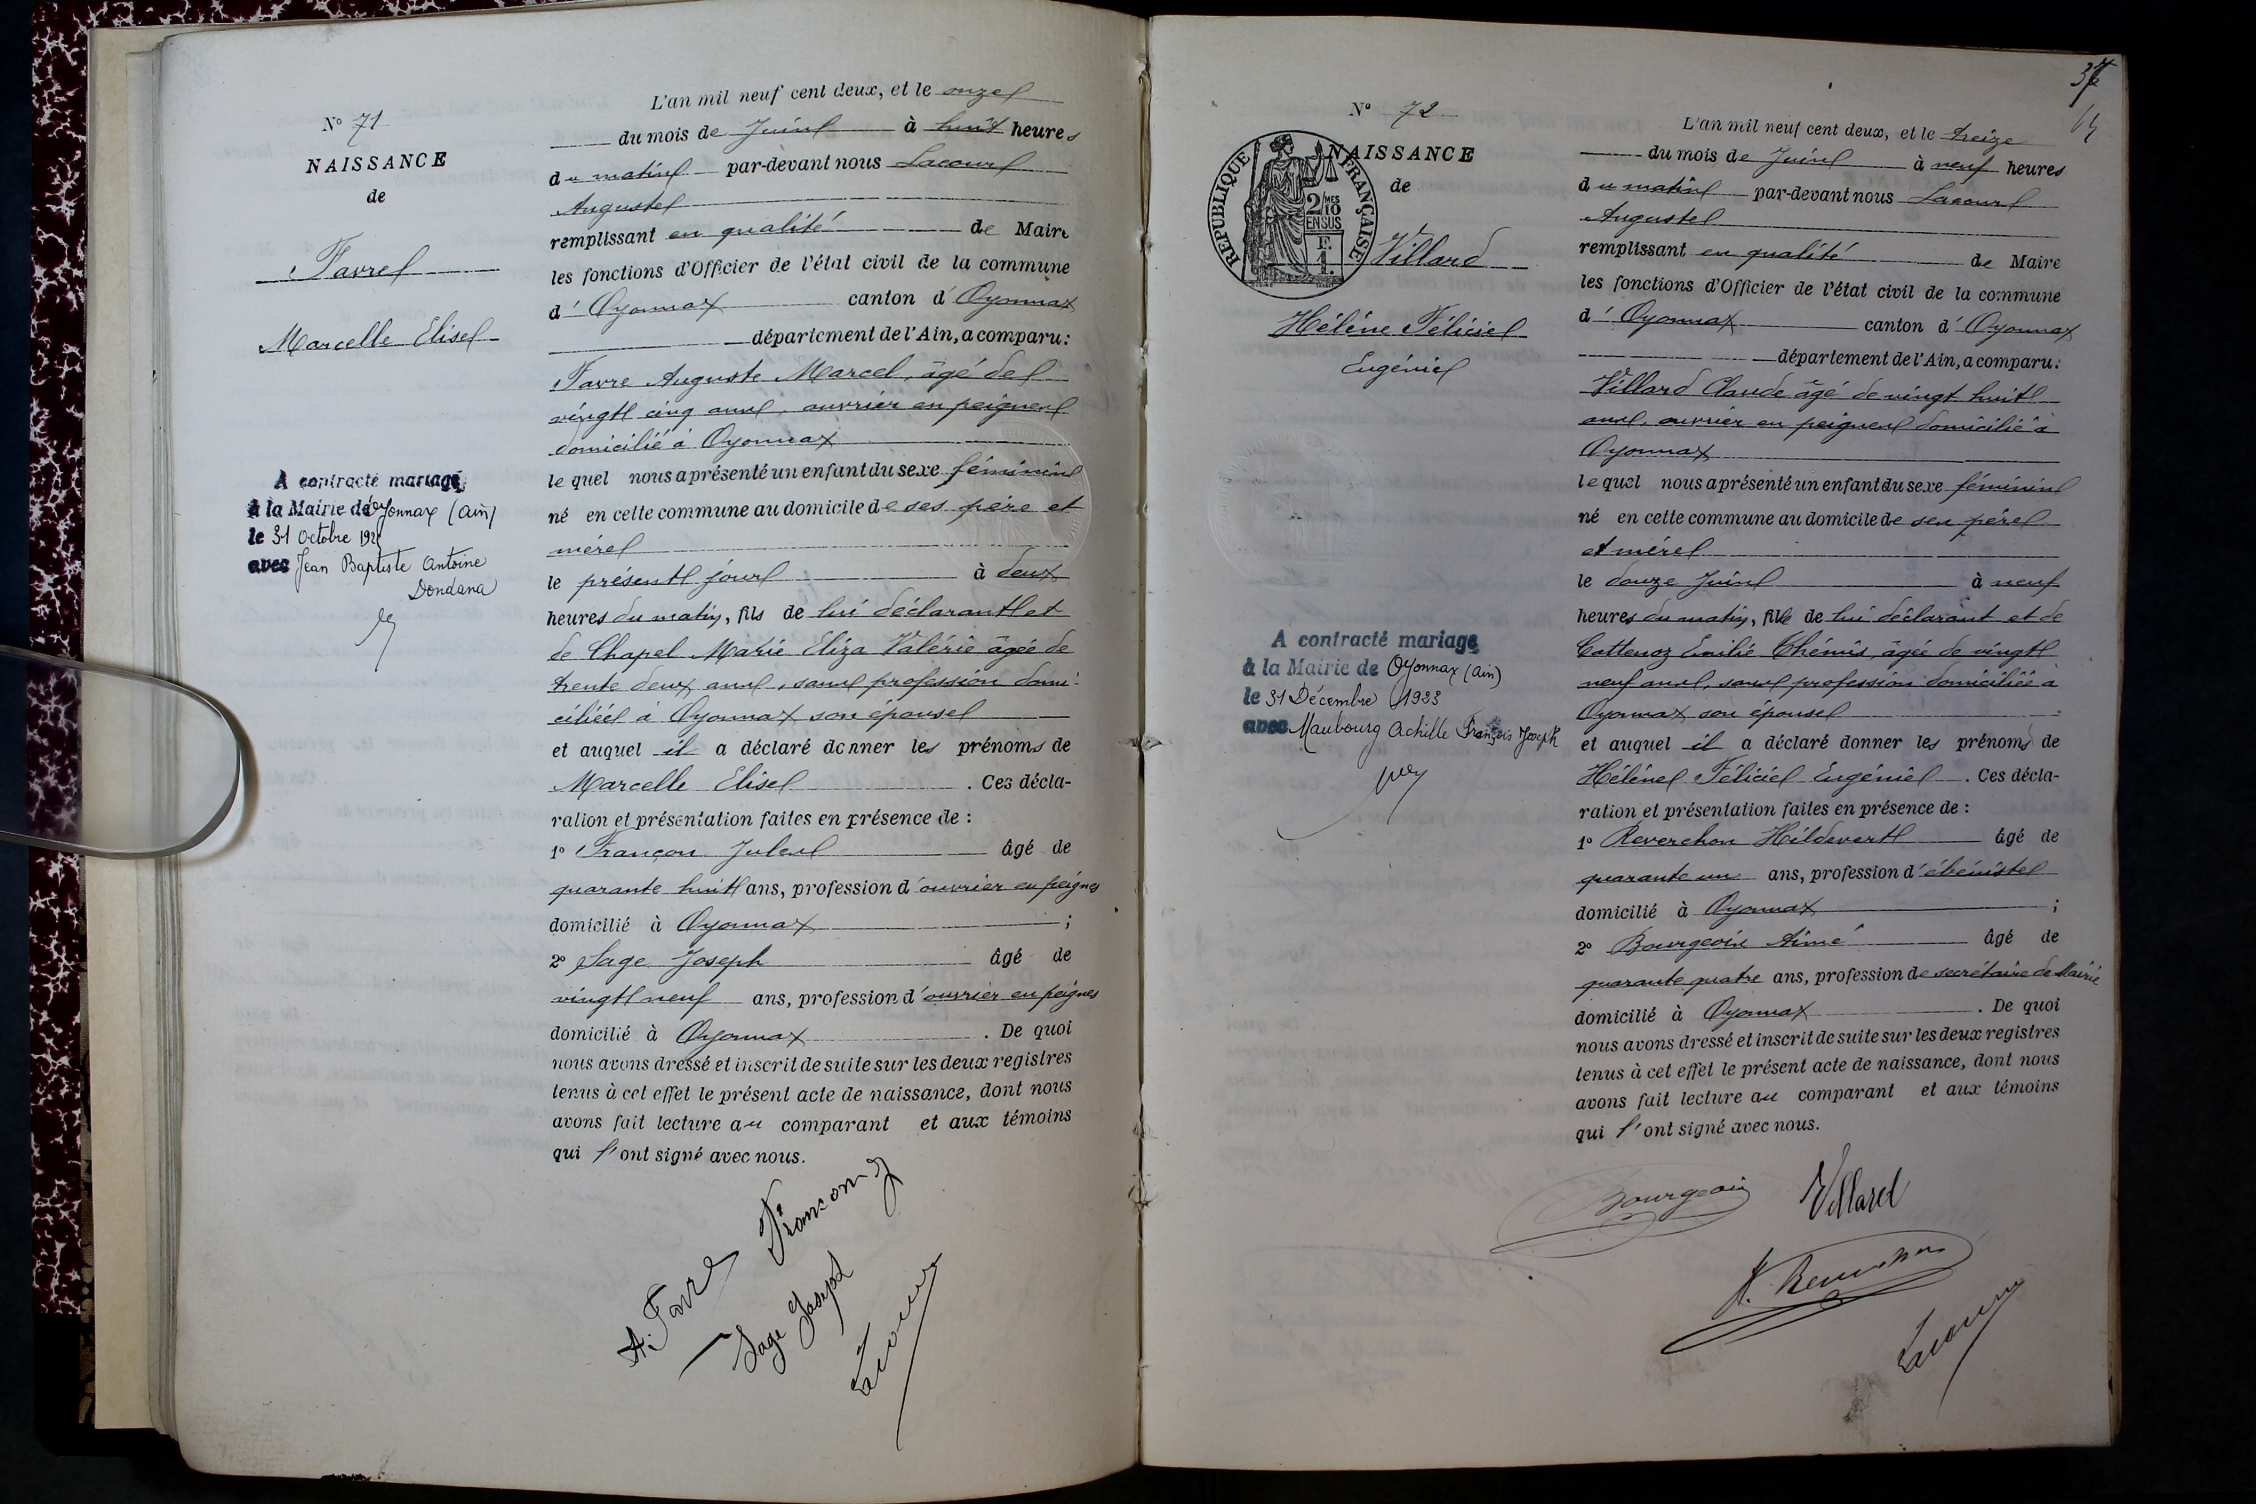 N° 71
NAISSANCE
de
Favre
Marcelle Elise
A contracté mariage
à la Mairie de Oyonnax (Ain)
le 31 Octobre
avec Jean Baptiste Antoine
Dondana
L'an mil neuf cent deux, et le onze
du mois de Juin à huit heures
du matin par-devant nous Lacour
Auguste
remplissant en qualité de Maire
les fonctions d'Officier de l'état civil de la commune
d'Oyonnax canton d'Oyonnax
département de l'Ain, a comparu:
Favre Auguste Marcel, âgé de
vingt cinq ans, ouvrier en peignes
domicilié à Oyonnax
lequel nous a présenté un enfant du sexe féminin
né en cette commune au domicile de ses père et
mère
le présent jour à deux
heures du matin, fils de lui déclarant et
de Chapel Marie Eliza Valérie âgée de
trente deux ans, sans profession domi-
ciliée à Oyonnax son épouse
et auquel il a déclaré donner les prénoms de
Marcelle Elise. Ces décla-
ration et présentation faites en présence de :
1° Françon Jules âgé de
quarante huit ans, profession d'ouvrier en peignes
domicilié à Oyonnax ;
2° Sage Joseph âgé de
vingt neuf ans, profession d'ouvrier en peignes
domicilié à Oyonnax. De quoi
nous avons dressé et inscrit de suite sur les deux registres
tenus à cet effet le présent acte de naissance, dont nous
avons fait lecture au comparant et aux témoins
qui l'ont signé avec nous.
A. Favre Françon J
Sage Joseph
Lacour
37
N° 72
NAISSANCE
de
REPUBLIQUE FRANÇAISE
2 MES 10 EN SUS
F. 1.
Villard
Hélène Félicie
Eugénie
A contracté mariage
à la Mairie de Oyonnax (Ain)
le 31 Décembre 1923
avec Maubourg Achille François Joseph
L'an mil neuf cent deux, et le treize
du mois de Juin à neuf heures
du matin par-devant nous Lacour
Auguste
remplissant en qualité de Maire
les fonctions d'Officier de l'état civil de la commune
d'Oyonnax canton d'Oyonnax
département de l'Ain, a comparu:
Villard Claude âgé de vingt huit
ans, ouvrier en peignes domicilié à
Oyonnax
lequel nous a présenté un enfant du sexe féminin
né en cette commune au domicile de ses père
et mère
le douze Juin à neuf
heures du matin, fille de lui déclarant et de
Cattenoz Emilie Thémis, âgée de vingt
neuf ans, sans profession domiciliée à
Oyonnax son épouse
et auquel il a déclaré donner les prénoms de
Hélène Félicie Eugénie. Ces décla-
ration et présentation faites en présence de :
1° Reverchon Hildevert âgé de
quarante un ans, profession d'ébéniste
domicilié à Oyonnax ;
2° Bourgeoix Aimé âgé de
quarante quatre ans, profession de secrétaire de Mairie
domicilié à Oyonnax. De quoi
nous avons dressé et inscrit de suite sur les deux registres
tenus à cet effet le présent acte de naissance, dont nous
avons fait lecture au comparant et aux témoins
qui l'ont signé avec nous.
Bourgeoix Villard
H. Reverchon
Lacour